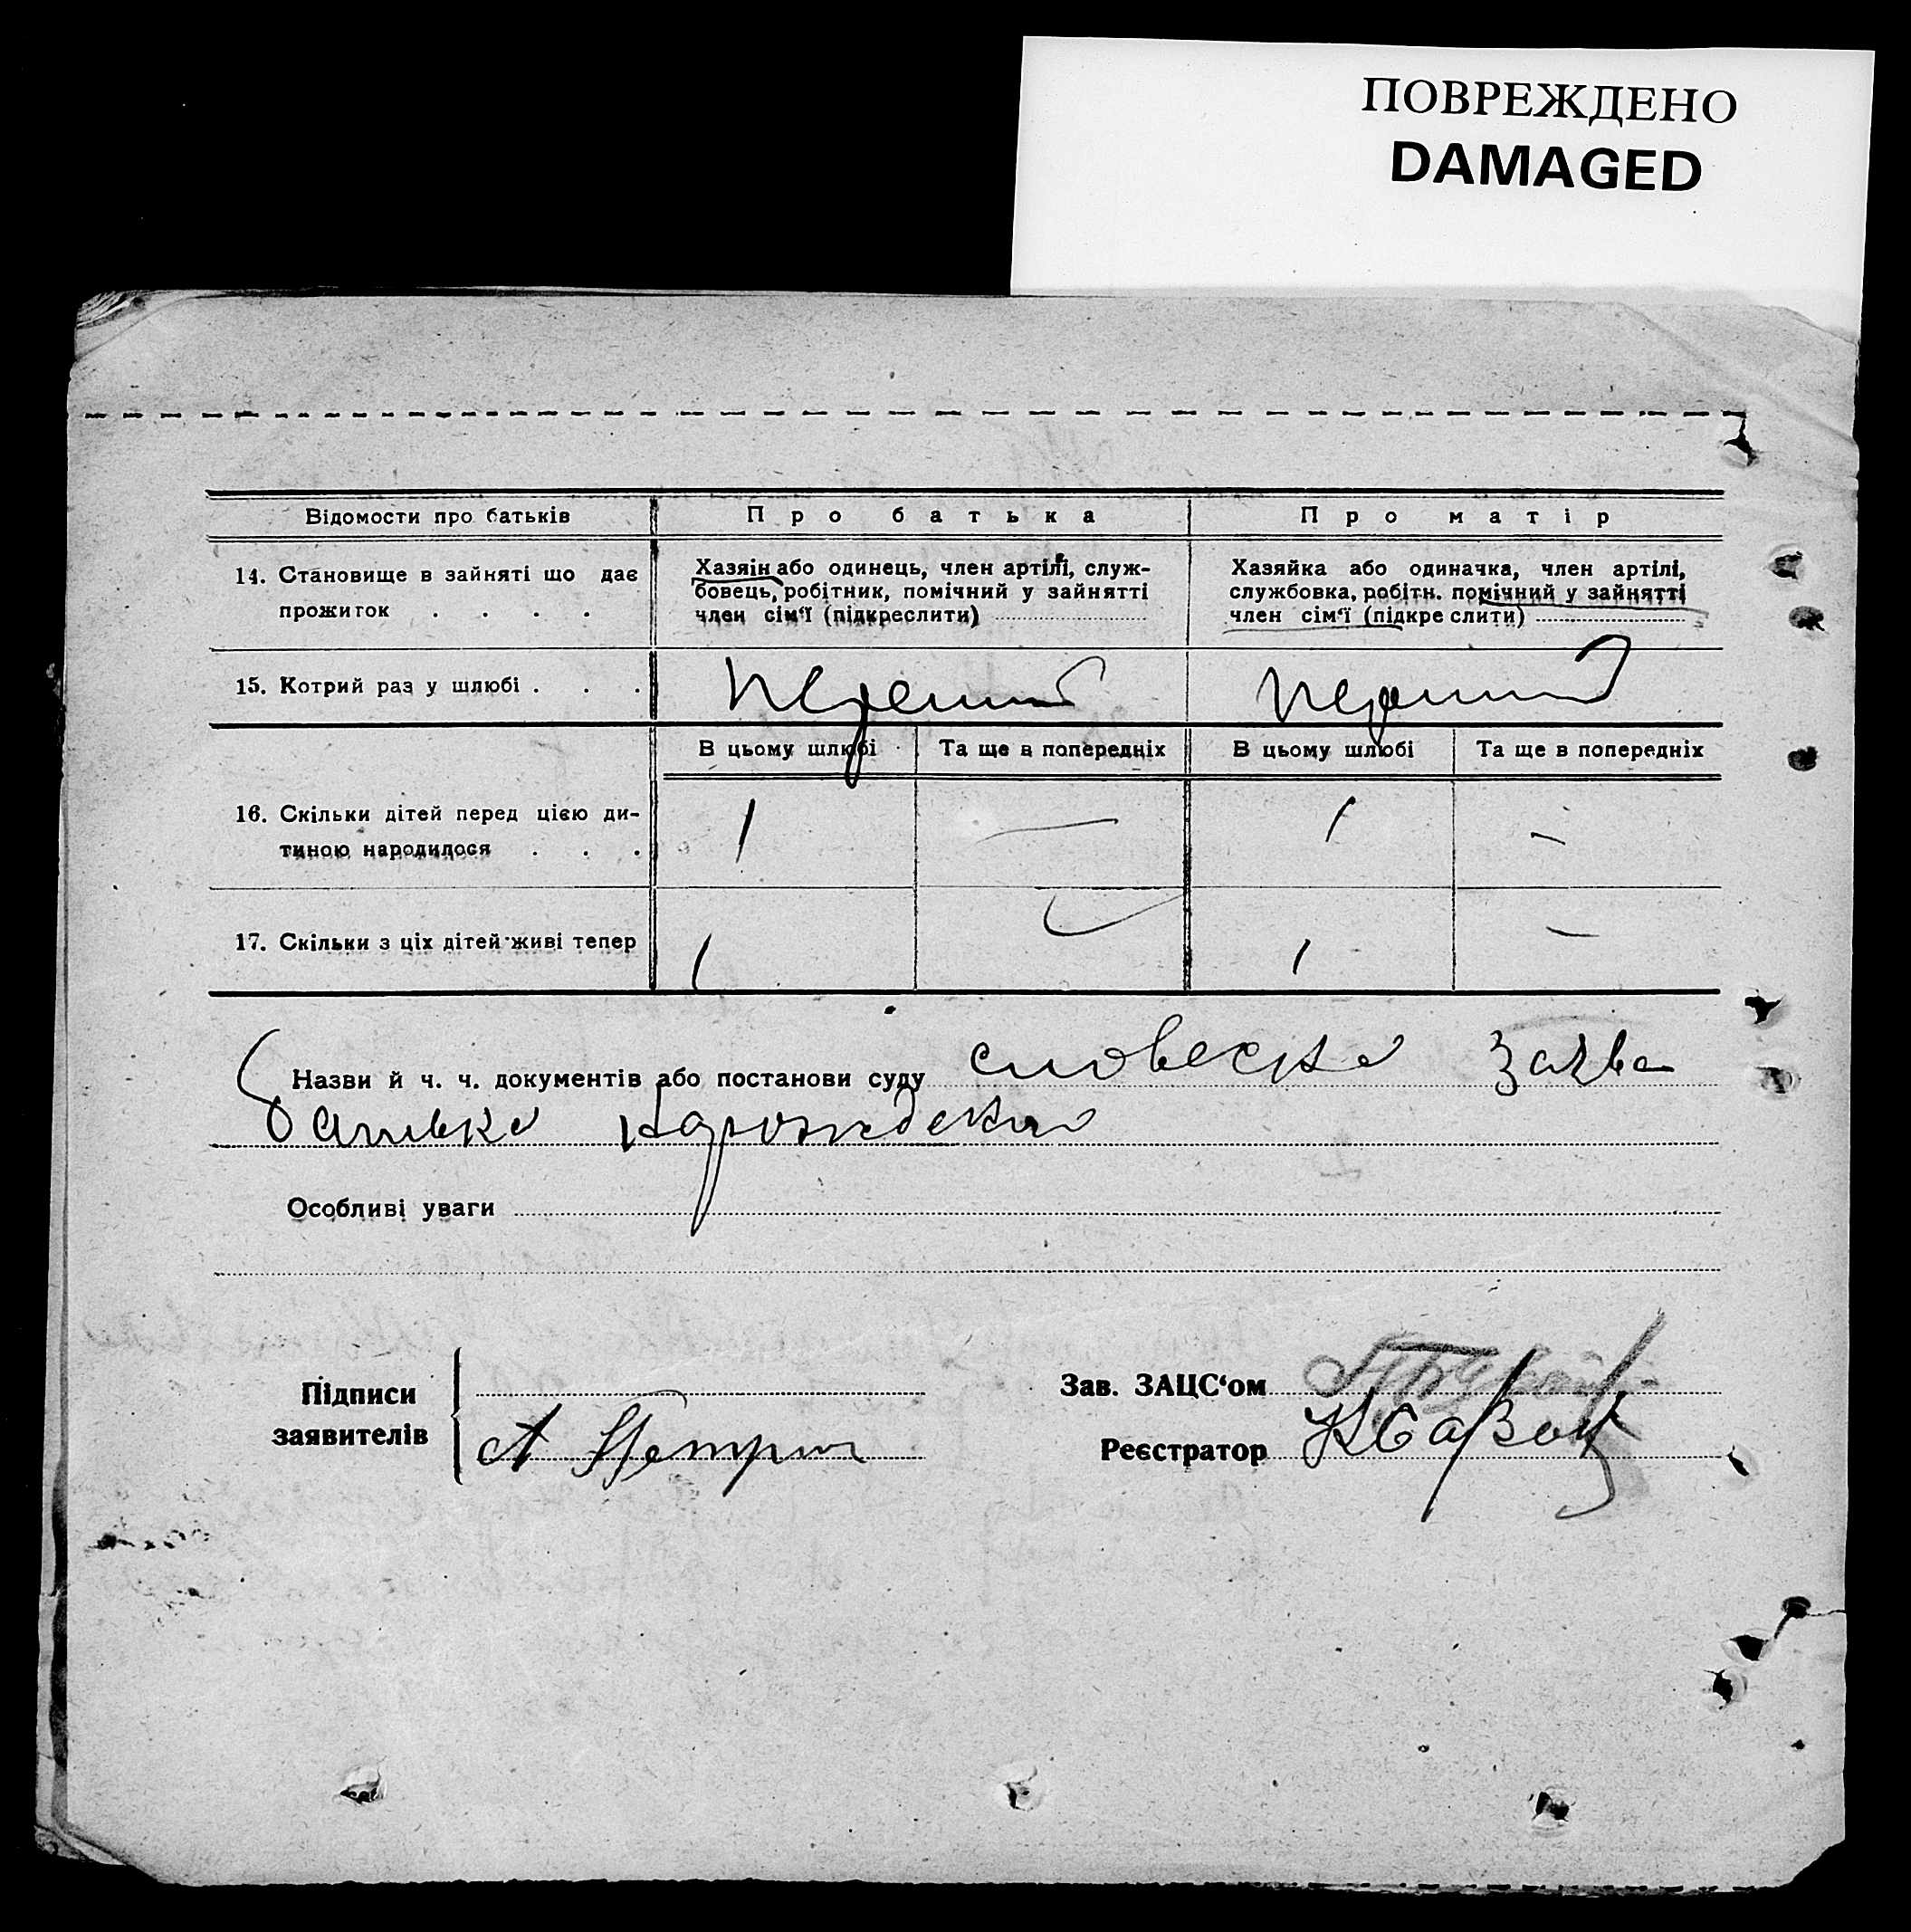 ПОВРЕЖДЕНО
DAMAGED
Відомости про батьків
Про батька
Про матір
14. Становище в зайняті що дає
прожиток . . . .
Хазяін або одинець, член артілі, служ-
бовець, робітник, помічний у зайнятті
член сім'ї (підкреслити)
Хазяйка або одиначка, член артілі,
службовка, робітн. помічний у зайнятті
член сім'ї (підкре слити)
15. Котрий раз у шлюбі . . .
перший
перший
В цьому шлюбі
Та ще в попередніх
В цьому шлюбі
Та ще в попередніх
16. Скільки дітей перед цією ди-
тиною народилося . . .
1
—
1
—
17. Скільки з ціх дітей живі тепер
1
—
1
—
Назви й ч. ч. документів або постанови суду словесна заява
батька
Особливі уваги
Підписи
заявителів
А Петрич
Зав. ЗАЦС'ом
Реєстратор